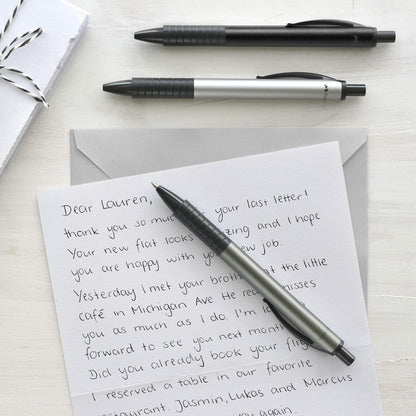 Dear Lauren,
thank you so mu your last letter!
Your new flat looks zing and I hope
you are happy with you new job.
Yesterday I met your broth t the little
café in Michigan Ave. He rea misses
you as much as I do. I'm l
forward to see you next mont
Did you already book your flig
I reserved a table in our favorite
staurant. Jasmin, Lukas and Marcus
you again.